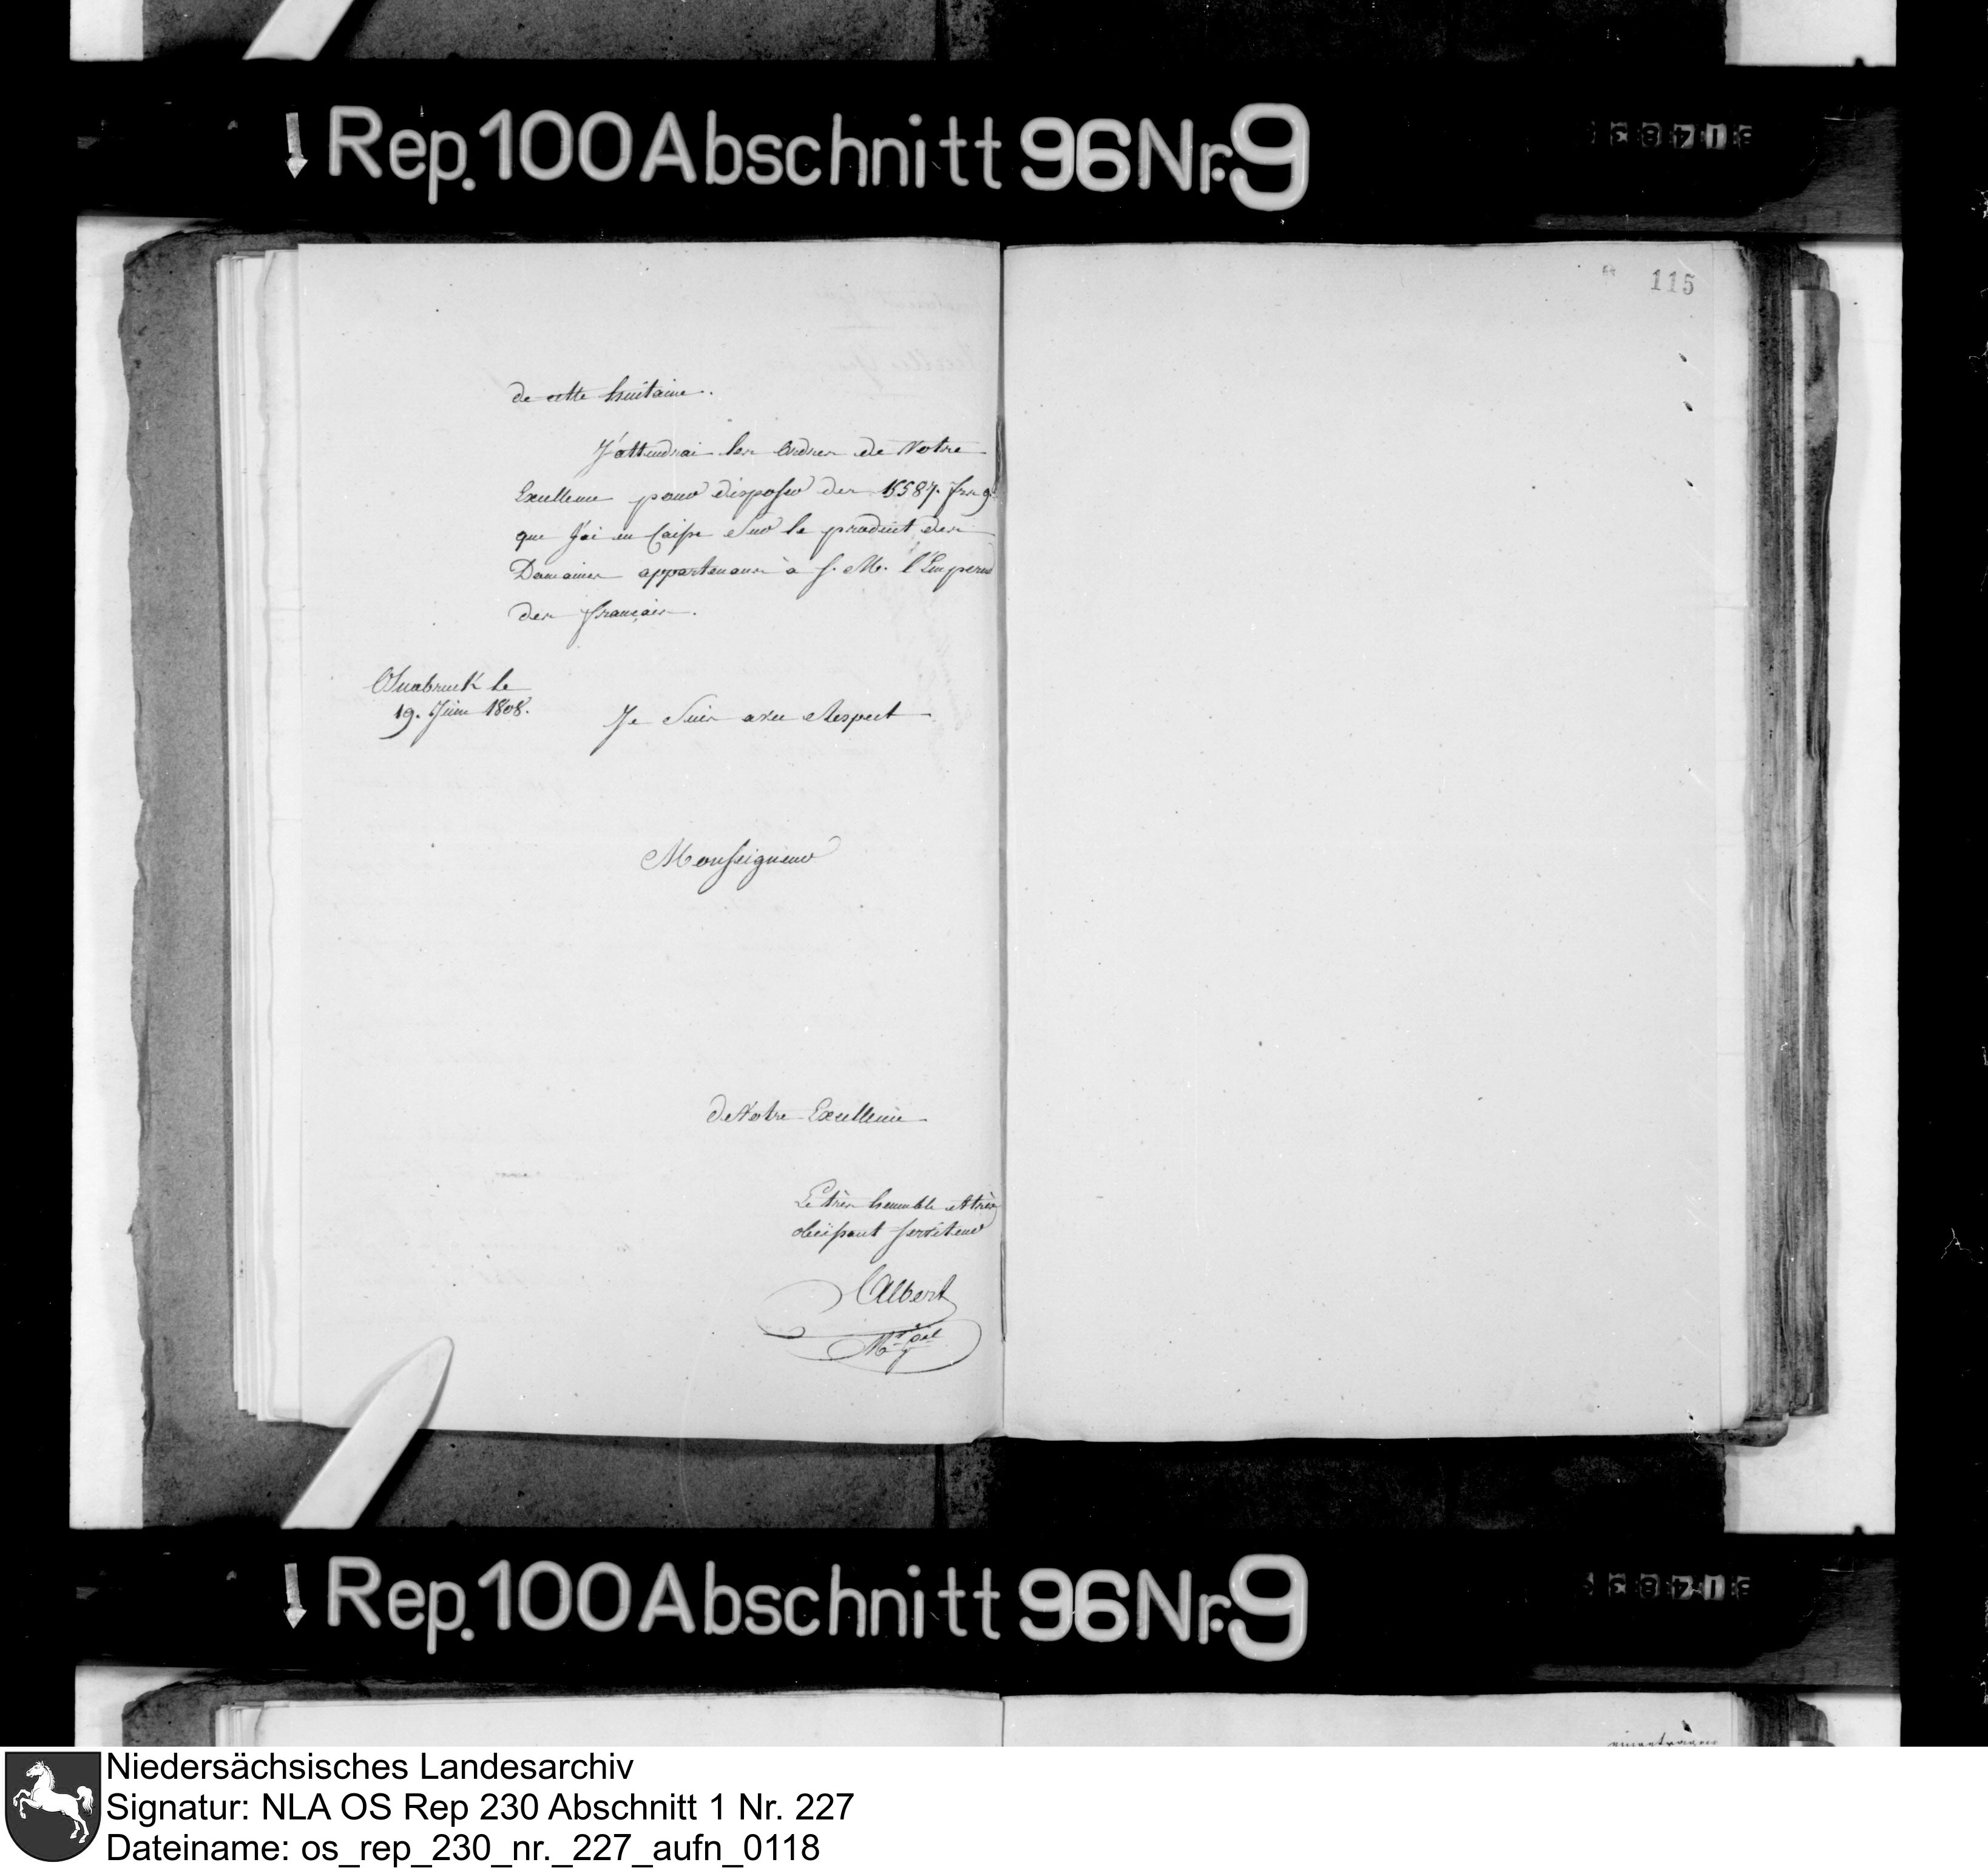 Rep. 100 Abschnitt 96 Nr. 9
115
de cette huitaine.
J'attendrai les Ordres de Votre
Excellence pour disposer des 15587. frs 9
que j'ai en Caisse Sur le produit des
Domaines appartenans à S. M. l'Empereur
des français.
Osnabruck le
19. Juin 1808.
Je Suis avec Respect
Monseigneur
de Votre Excellence
Le très humble et très
obéissant serviteur
Albert
Rep. 100 Abschnitt 96 Nr. 9
Niedersächsisches Landesarchiv
Signatur: NLA OS Rep 230 Abschnitt 1 Nr. 227
Dateiname: os_rep_230_nr._227_aufn_0118